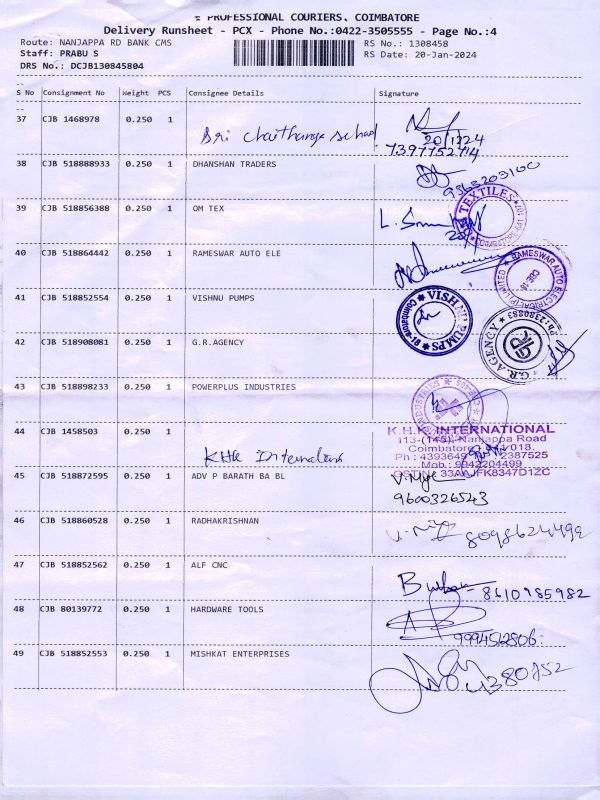 PROFESSIONAL COURIERS, COIMBATORE
Delivery Runsheet - PCX - Phone No.:0422-3505555 - Page No.:4
Route: NANJAPPA RD BANK CMS RS No.: 1308458
Staff: PRABU S RS Date: 20-Jan-2024
DRS No.: DCJB130845804
S No Consignment No Weight PCS Consignee Details Signature
37 CJB 1468978 0.250 1
Sri Chaithanya School 20/1/24
7397752714
38 CJB 518888933 0.250 1 DHANSHAN TRADERS
9363203100
39 CJB 518856388 0.250 1 OM TEX
TEXTILES
COIMBATORE
40 CJB 518864442 0.250 1 RAMESWAR AUTO ELE
RAMESWAR AUTO ELECTRICAL (P) LIMITED
CBE 18
41 CJB 518852554 0.250 1 VISHNU PUMPS
VISHNU PUMPS
Coimbatore-18
42 CJB 518908081 0.250 1 G.R.AGENCY
G.R. AGENCY
Ph:2380883
43 CJB 518898233 0.250 1 POWERPLUS INDUSTRIES
INDUSTRIES
44 CJB 1458503 0.250 1
KHK International
K.H.K. INTERNATIONAL
113-(145), Nanjappa Road
Coimbatore 641 018.
Ph : 4393649 2387525
Mob.: 9942204499
GSTIN: 33AAJFK8347D1ZC
45 CJB 518872595 0.250 1 ADV P BARATH BA BL
9600326543
46 CJB 518860528 0.250 1 RADHAKRISHNAN
8098624492
47 CJB 518852562 0.250 1 ALF CNC
8610985982
48 CJB 80139772 0.250 1 HARDWARE TOOLS
49 CJB 518852553 0.250 1 MISHKAT ENTERPRISES